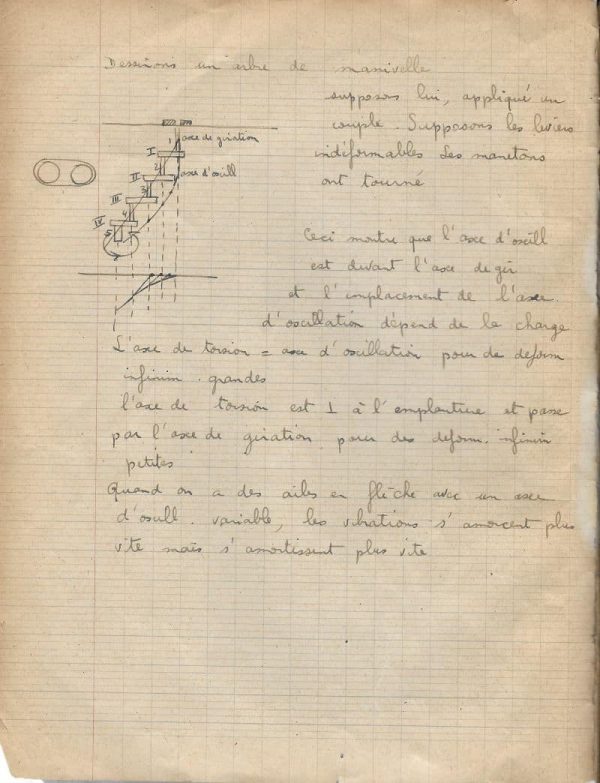 Dessinons un arbre de manivelle
supposons lui, appliqué un
couple. Supposons les leviers
indéformables Les manetons
ont tourné
axe de giration
axe d'oscill
I
II
III
IV
1
2
3
4
5
Ceci montre que l'axe d'oscill
est devant l'axe de gir
et l'implacement de l'axe
d'oscillation dépend de la charge
L'axe de torsion = axe d'oscillation pour de deform
infinim. grandes
l'axe de torsion est ⊥ à l'emplanture et passe
par l'axe de giration pour des deform. infinim
petites
Quand on a des ailes en flêche avec un axe
d'oscill. variable, les vibrations s'amorcent plus
vite mais s'amortissent plus vite